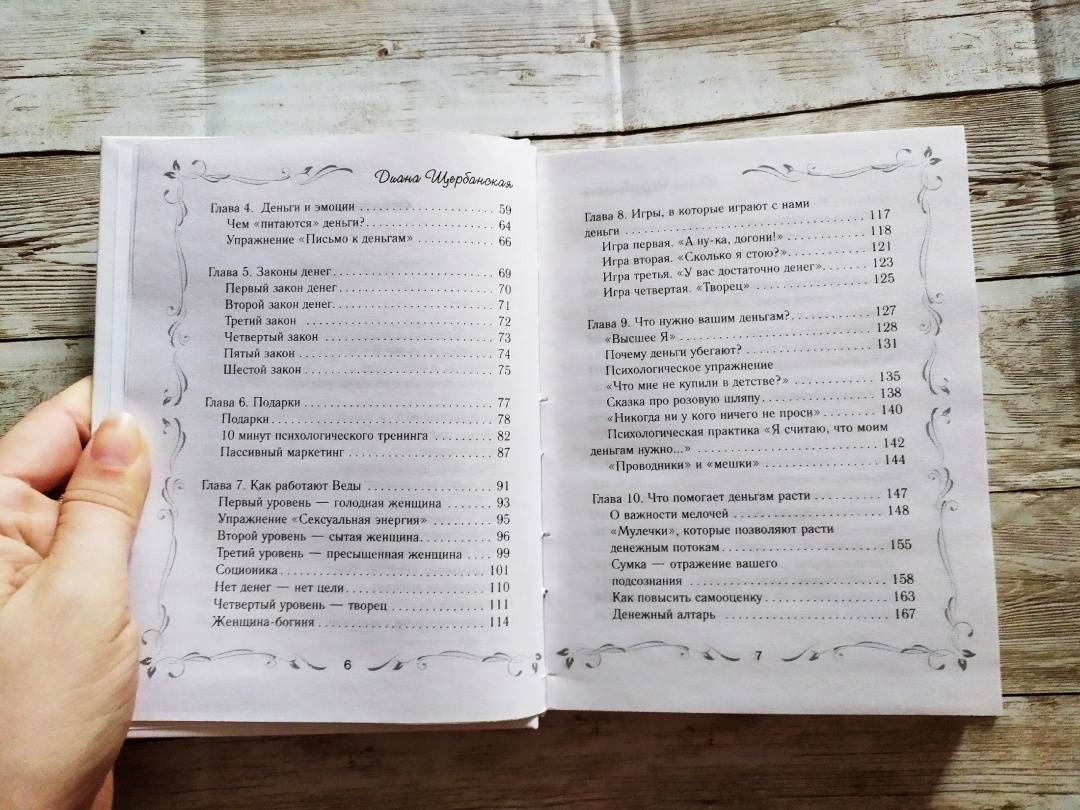 Диана Щербанская
Глава 4. Деньги и эмоции ........ 59
Чем «питаются» деньги? ........ 64
Упражнение «Письмо к деньгам» ........ 66
Глава 5. Законы денег ........ 69
Первый закон денег ........ 70
Второй закон денег ........ 71
Третий закон ........ 72
Четвертый закон ........ 73
Пятый закон ........ 74
Шестой закон ........ 75
Глава 6. Подарки ........ 77
Подарки ........ 78
10 минут психологического тренинга ........ 82
Пассивный маркетинг ........ 87
Глава 7. Как работают Веды ........ 91
Первый уровень — голодная женщина ........ 93
Упражнение «Сексуальная энергия» ........ 95
Второй уровень — сытая женщина ........ 96
Третий уровень — пресыщенная женщина ........ 99
Соционика ........ 101
Нет денег — нет цели ........ 110
Четвертый уровень — творец ........ 111
Женщина-богиня ........ 114
6
Глава 8. Игры, в которые играют с нами
деньги ........ 117
Игра первая. «А ну-ка, догони!» ........ 118
Игра вторая. «Сколько я стою?» ........ 121
Игра третья. «У вас достаточно денег» ........ 123
Игра четвертая. «Творец» ........ 125
Глава 9. Что нужно вашим деньгам? ........ 127
«Высшее Я» ........ 128
Почему деньги убегают? ........ 131
Психологическое упражнение
«Что мне не купили в детстве?» ........ 135
Сказка про розовую шляпу ........ 138
«Никогда ни у кого ничего не проси» ........ 140
Психологическая практика «Я считаю, что моим
деньгам нужно...» ........ 142
«Проводники» и «мешки» ........ 144
Глава 10. Что помогает деньгам расти ........ 147
О важности мелочей ........ 148
«Мулечки», которые позволяют расти
денежным потокам ........ 155
Сумка — отражение вашего
подсознания ........ 158
Как повысить самооценку ........ 163
Денежный алтарь ........ 167
7